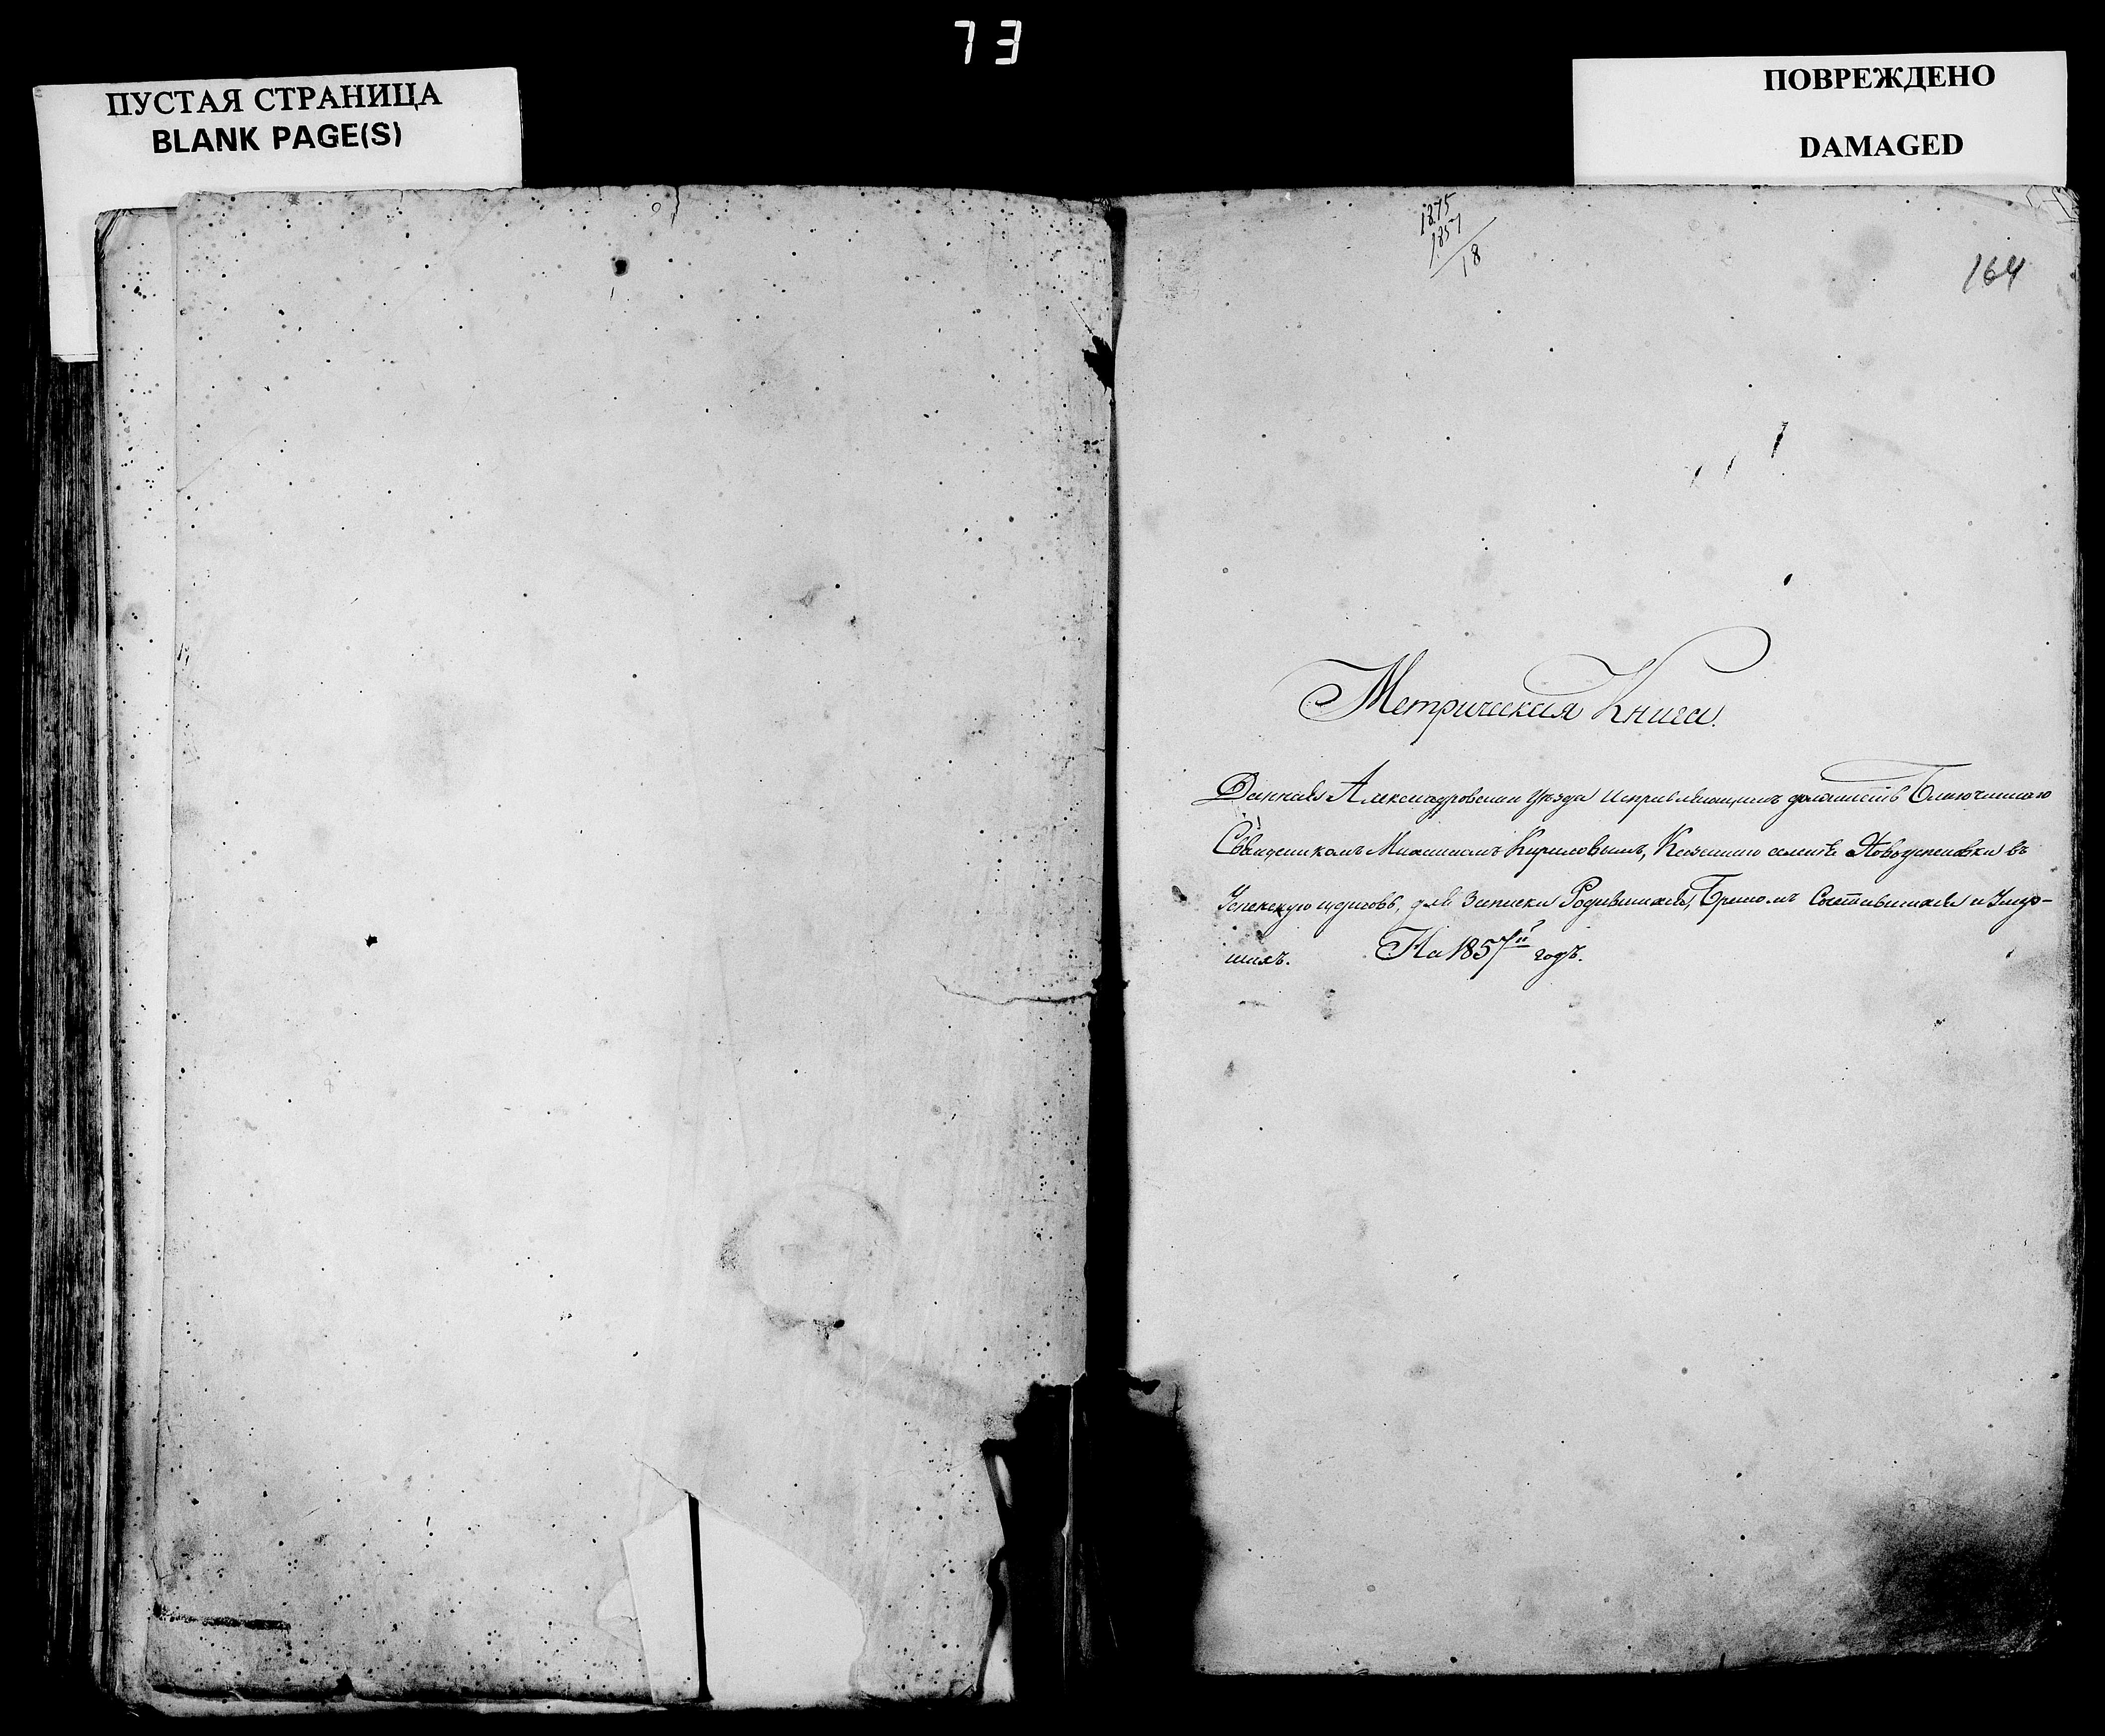 73
ПУСТАЯ СТРАНИЦА
BLANK PAGE(S)
ПОВРЕЖДЕНО
DAMAGED
1875
1857
18
164
Метрическая Книга.
Данная Александровскаго Уѣзда Исправляющимъ должность Благочиннаго
Священникомъ Кириловымъ, Казеннаго селенія Новоуспеновки въ
Успенскую церковь, для Записки Родившихся, Бракомъ Сочетавшихся и Умер-
шихъ. На 1857й годъ.